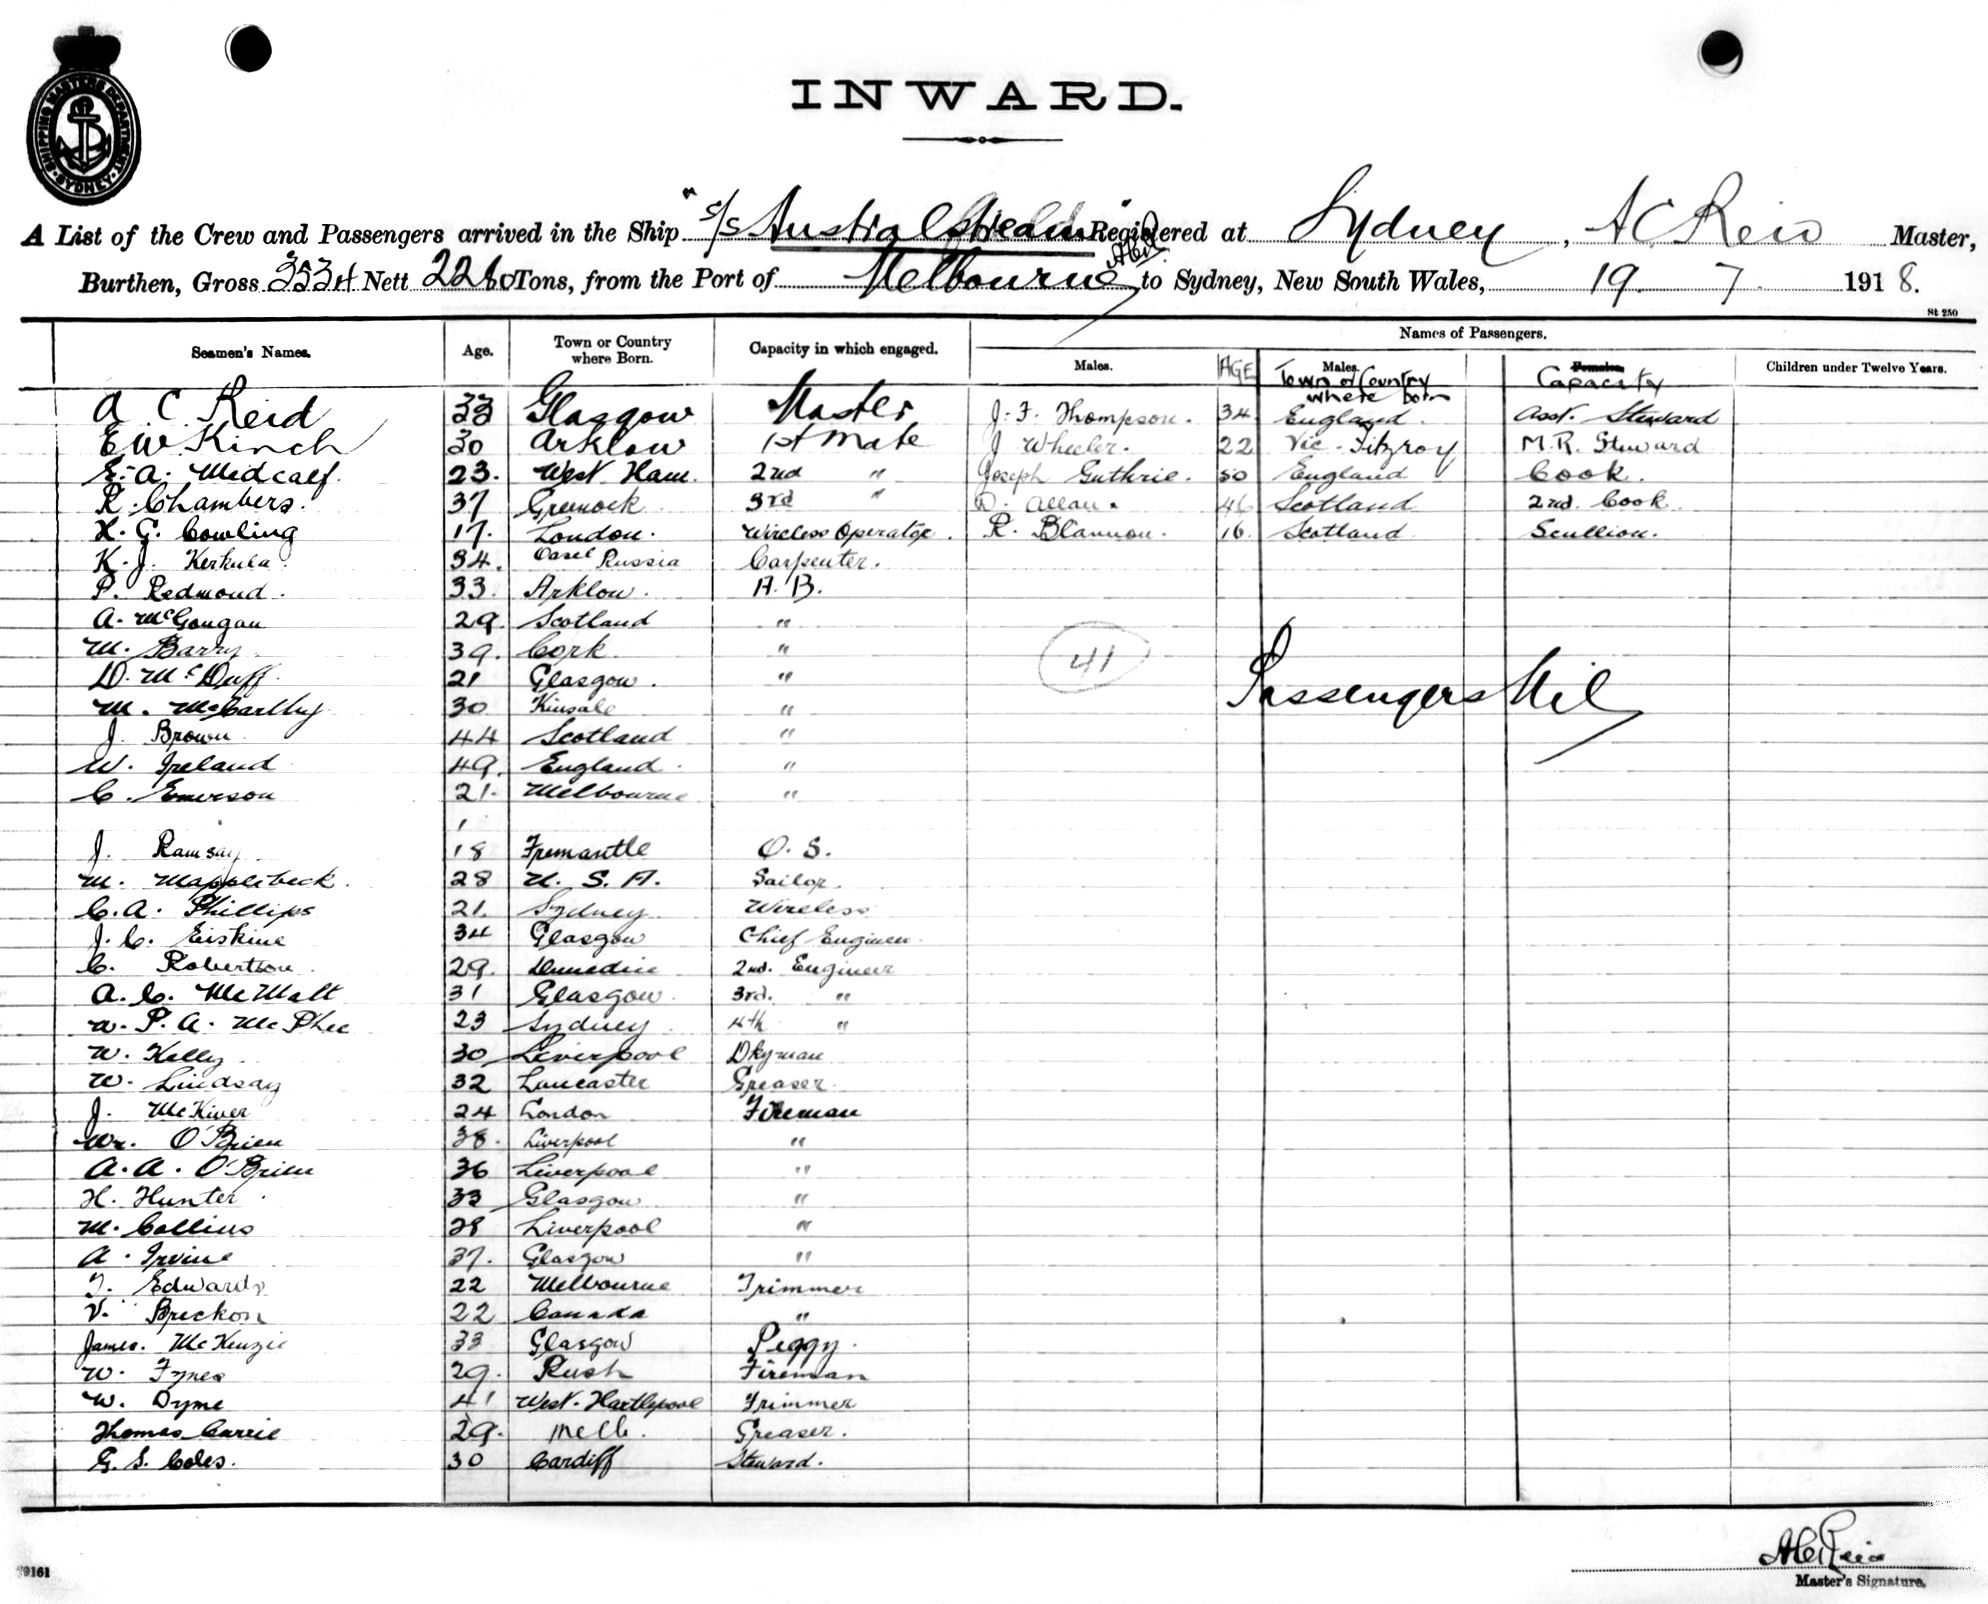 SHIPPING MASTERS DEPARTMENT
SYDNEY
INWARD.
A List of the Crew and Passengers arrived in the Ship "S/S Registered at Sydney, A C Reid Master,
Burthen, Gross 3334 Nett Tons, from the Port of Melbourne to Sydney, New South Wales, 19. 7. 1918.
St 250
Seamen's Names. Age. Town or Country where Born. Capacity in which engaged. Names of Passengers.
Males. AGE Males. Town or Country where born Females. Capacity Children under Twelve Years.
A C Reid 33 Glasgow Master J. F. Thompson. 34 England. Asst. Steward
E W Kinch 30 Arklow 1st Mate J Wheeler. 22 Vic. Fitzroy M.R. Steward
E. A. Medcalf. 23. West Ham. 2nd " Joseph Guthrie. 50 England Cook.
R. Chambers. 37 Greenock 3rd " D. Allan. 46 Scotland 2nd. Cook
H. G. Cowling 17. London. Wireless Operator. R. Blannon. 16. Scotland Scullion.
K. J. Kerkula 34. Oasel Russia Carpenter.
P. Redmond. 33. Arklow. A. B.
A. McGougan 29. Scotland "
M. Barry 39. Cork. "
41
D. McDuff. 21 Glasgow. "
Passengers Nil
M. McCarthy 30 Kinsale "
J. Brown 44 Scotland "
W. Ireland 49. England. "
C. Emerson 21. Melbourne "
1
J. Ramsay 18 Fremantle O. S.
M. Mapplebeck. 28 U. S. A. Sailor.
C. A. Phillips 21. Sydney Wireless
J. C. Erskine 34 Glasgow Chief Engineer.
C. Robertson 29. Dunedin 2nd. Engineer
A. C. 31 Glasgow. 3rd. "
W. P. A. McPhee 23 Sydney 4th "
W. Kelly 30 Liverpool Dkyman
W. Lindsay 32 Lancaster Greaser
J. McKiver 24 London Fireman
Wm. O'Brien 38. Liverpool "
A. A. O'Brien 36 Liverpool "
H. Hunter 33 Glasgow "
M. Collins 28 Liverpool "
A. Irvine 37. Glasgow "
T. Edwards 22 Melbourne Trimmer
V. Breckon 22 Canada "
James. McKenzie 33 Glasgow Peggy.
W. Fynes 29. Rush Fireman
W. Dyme 41 West. Hartlepool Trimmer
Thomas Carrie 29. Melb. Greaser.
G. S. Coles. 30 Cardiff Steward.
A C Reid
Master's Signature.